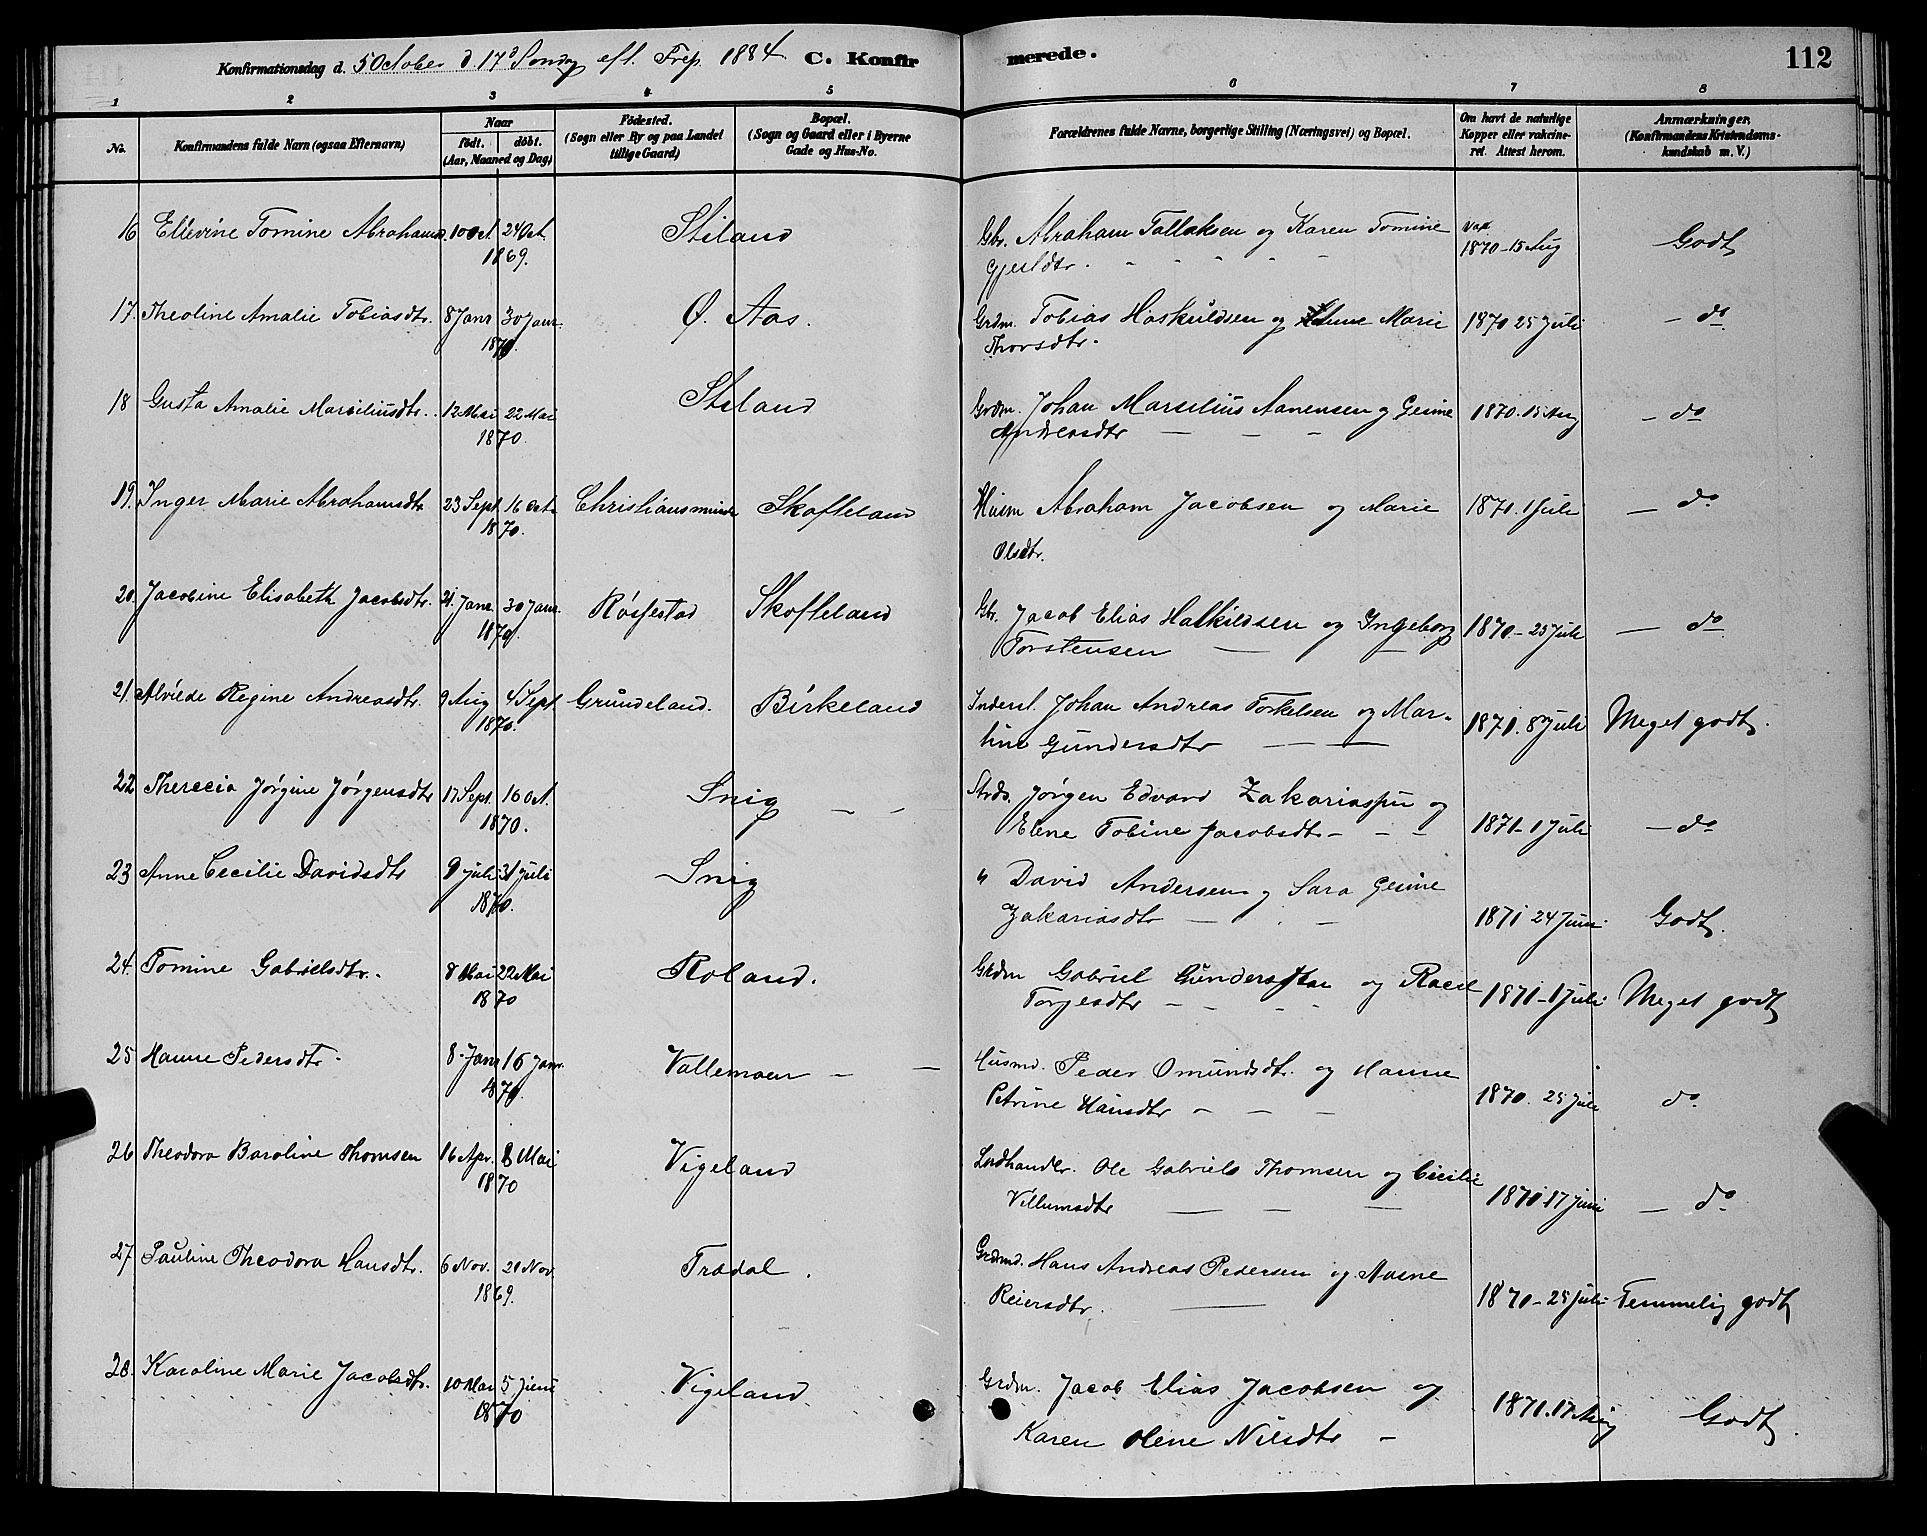 Konfirmationsdag d. 5 October d. 17d Søndag eft. Trep. 1884 C. Konfirmerede. 112
1 2 3 4 5 6 7 8
No. Konfirmandens fulde Navn (ogsaa Efternavn) Naar født. døbt. (Aar, Maaned og Dag) Fødested. (Sogn eller By og paa Landet tillige Gaard) Bopæl. (Sogn og Gaard eller i Byerne Gade og Hus-No. Forældrenes fulde Navne, borgerlige Stilling (Næringsvei) og Bopæl. Om havt de naturlige Kopper eller vakcineret. Attest herom. Anmærkninger. (Konfirmandens Kristendomskundskab m. V.)
16 Ellevine Tomine Abrahamsd. 10 Oct. 24 Oct. Stiland Gbr. Abraham Tallaksen og Karen Tomine Vax 1870-15 Aug Godt
1869. Gjertdtr. - - - -
17. Theoline Amalie Tobiasdtr. 8 Janr 30 Janr. Ø. Aas. Grdm. Tobias Haskuldsen og Anne Marie 1870 25 Juli - do
1870. Thorsdtr.
18 Gusta Amalie Marsiliusdtr. 12 Mai 22 Mai Stiland Grdm. Johan Marselius Aanensen og Gesine 1870. 15 Aug - do
1870. Andreasdtr - - -
19. Inger Marie Abrahamsdtr 23 Sept. 16 Oct. Christiansminde Skofteland Husm Abraham Jacobsen og Marie 1871. 1 Juli - do
1870. Olsdtr.
20. Jacobine Elisabeth Jacobsdtr. 21. Janr. 30 Janr. Røsfestad Skofteland Gbr. Jacob Elias Halkildsen og Ingeborg 1870-25 Juli - do
1870. Torstensen - -
21. Alvilde Regine Andreasdtr. 9 Aug 4 Sept Grundeland. Birkeland Inderst. Johan Andreas Torkelsen og Mar- 1871. 8 Juli Meget godt.
1870. tine Gundersdtr - -
22 Therecia Jørgine Jørgensdtr 17 Sept. 16 Oct. Snig - - Strds. Jørgen Edvard Zakariassen og
1870. Elene Tobine Jacobsdtr - - - 1871-1 Juli - do
23 Anne Cecilie Davidsdtr 9 juli 31 juli Snig " David Andersen og Sara Gesine
1870. Zakariasdtr - - - 1871 24 Juni Godt.
24. Tomine Gabrielsdtr. 8 Mai 22 Mai Roland. Grdm Gabriel Gundersen og Rael
1870 Torjesdtr - - 1871-1 Juli Meget godt
25 Hanne Pedersdtr. 8. Janr 16 Janr. Vallemoen - - Husmd. Peder Omundsdtr. og Hanne
1870. Petrine Hansdtr - - - 1870. 25 juli do.
26 Theodora Baroline Thomsen 16 Apr. 8 Mai Vigeland Landhandlr. Ole Gabriels Thomsen og Cecilie
1870 Villumsdtr - - - 1871 17 juni - do
27. Pauline Theodora Hansdtr. 6 Nov. 21 Nov. Tradal. Grdmd. Hans Andreas Pedersen og Aasne
1869. Reiersdtr. - 1870-25 juli Temmelig godt
28. Karoline Marie Jacobsdtr. 10 Mai 5 Juni Vigeland. Grdm. Jacob Elias Jacobsen og 1871. 17 Aug Godt.
1870 Karen Olene Nilsdtr -